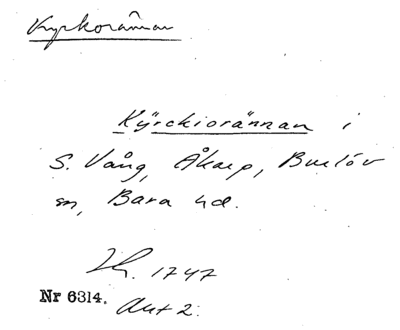 Kyrkorännan
Kÿrckiorännan i
S. Vång, Åkarp, Burlöv
sn, Bara hd.
Lh. 1747
Nr 6314.
Akt 2.